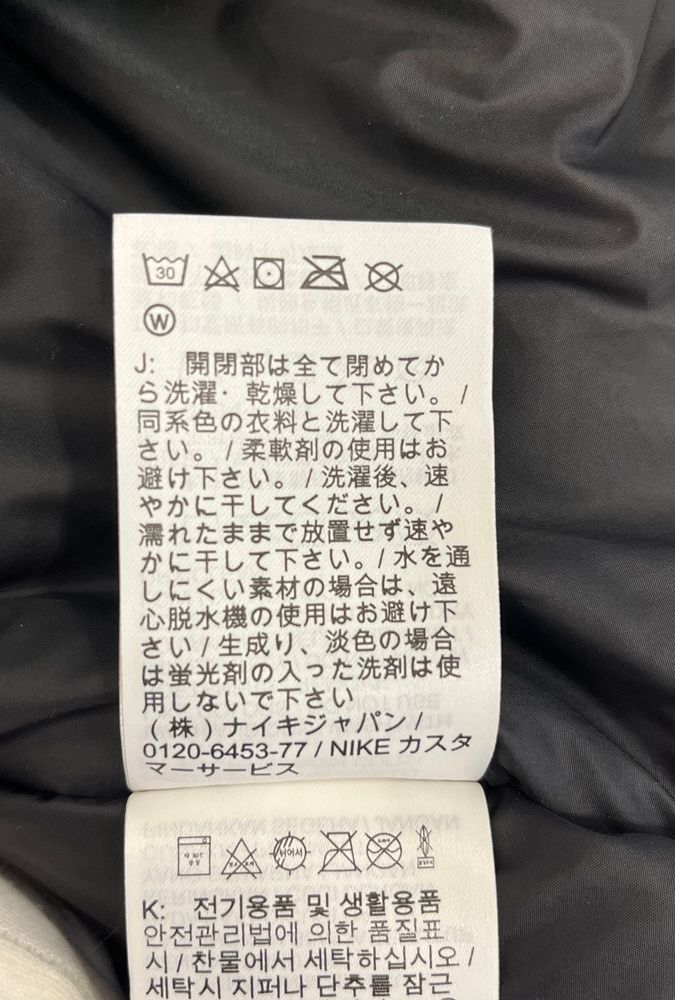 30
W
J: 開閉部は全て閉めてか
ら洗濯・乾燥して下さい。/
同系色の衣料と洗濯して下
さい。/ 柔軟剤の使用はお
避け下さい。/ 洗濯後、速
やかに干してください。/
濡れたままで放置せず速や
かに干して下さい。/ 水を通
しにくい素材の場合は、遠
心脱水機の使用はお避け下
さい / 生成り、淡色の場合
は蛍光剤の入った洗剤は使
用しないで下さい
(株) ナイキジャパン /
0120-6453-77 / NIKE カスタ
マーサービス
K: 전기용품 및 생활용품
안전관리법에 의한 품질표
시 / 찬물에서 세탁하십시오 /
세탁시 지퍼나 단추를 잠근